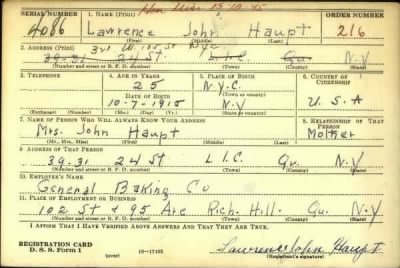 SERIAL NUMBER 1. NAME (Print) ORDER NUMBER
4086 Lawrence John Haupt 216
(First) (Middle) (Last)
2. ADDRESS (Print)
39-31 24 St L.I.C. Qu. N.Y
(Number and street or R. F. D. number) (Town) (County) (State)
3. TELEPHONE 4. AGE IN YEARS 5. PLACE OF BIRTH 6. COUNTRY OF CITIZENSHIP
25 N.Y.C.
DATE OF BIRTH (Town or county)
10-7-1915 N.Y U.S.A
(Exchange) (Number) (Mo.) (Day) (Yr.) (State or country)
7. NAME OF PERSON WHO WILL ALWAYS KNOW YOUR ADDRESS 8. RELATIONSHIP OF THAT PERSON
Mrs. John Haupt Mother
(Mr., Mrs., Miss) (First) (Middle) (Last)
9. ADDRESS OF THAT PERSON
39-31 24 St L.I.C Qu. N.Y
(Number and street or R. F. D. number) (Town) (County) (State)
10. EMPLOYER'S NAME
General Baking Co
11. PLACE OF EMPLOYMENT OR BUSINESS
102 St & 95 Ave Rich. Hill. Qu. N.Y
(Number and street or R. F. D. number) (Town) (County) (State)
I AFFIRM THAT I HAVE VERIFIED ABOVE ANSWERS AND THAT THEY ARE TRUE.
REGISTRATION CARD
D. S. S. Form 1 (over) 16-17105 Lawrence John Haupt
(Registrant's signature)